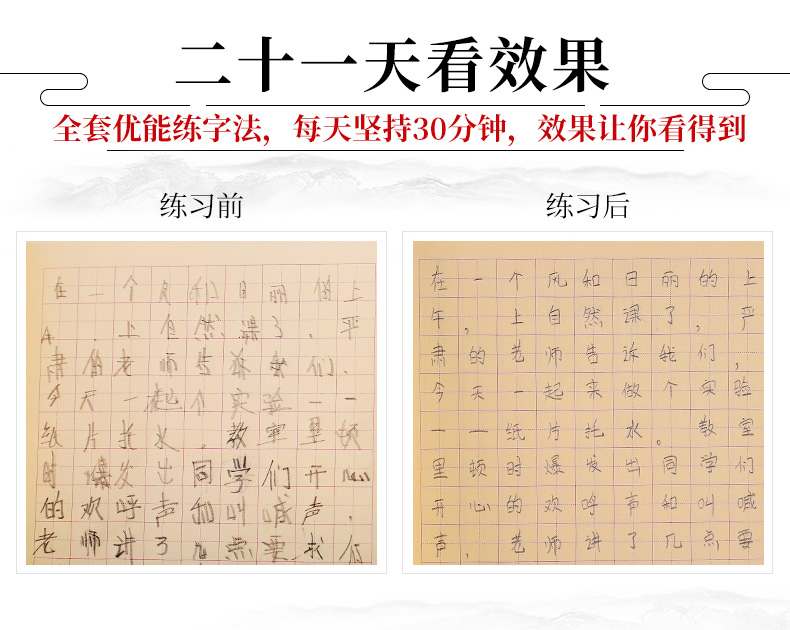 二十一天看效果
全套优能练字法，每天坚持30分钟，效果让你看得到
练习前
练习后
在一个风和日丽的上
午，上自然课了，严
肃的老师告诉我们，
今天一起个实验一一
纸片托水，教室里顿
时爆发出同学们开心
的欢呼声和叫喊声，
老师讲了几点要求，
在一个风和日丽的上
午，上自然课了，严
肃的老师告诉我们，
今天一起来做个实验
一一纸片托水。教室
里顿时爆发出同学们
开心的欢呼声和叫喊
声，老师讲了几点要